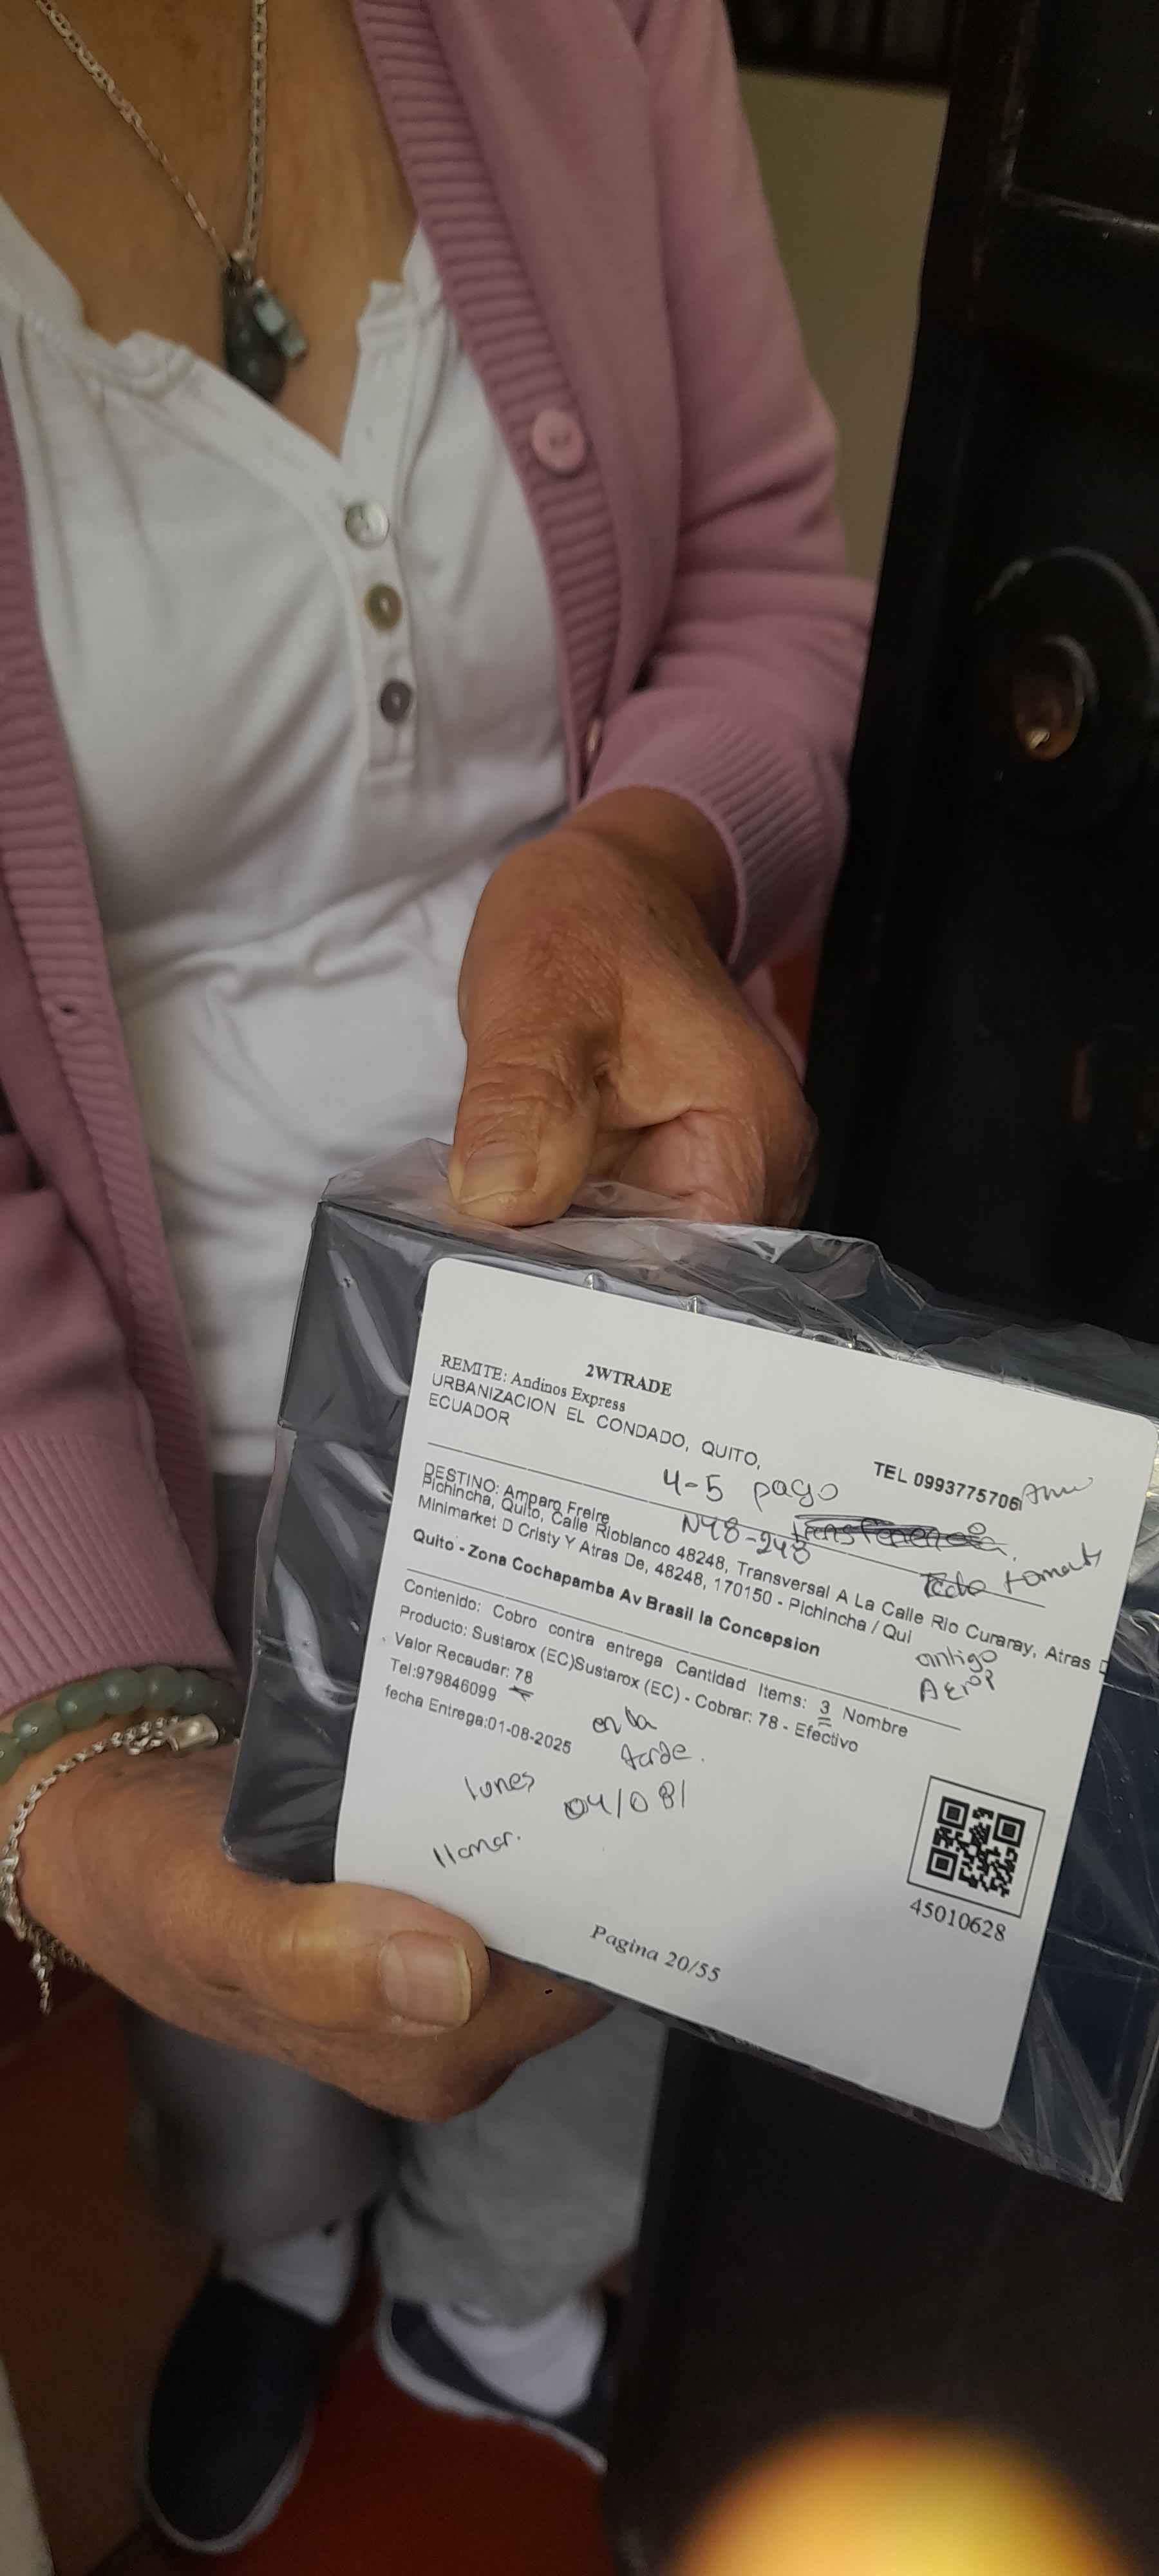 2WTRADE
REMITE: Andinos Express
URBANIZACION EL CONDADO, QUITO,
ECUADOR
TEL 0993775706
4-5 pago
DESTINO: Amparo Freire
N48-248
Pichincha, Quito, Calle Rioblanco 48248, Transversal A La Calle Rio Curaray, Atras D
Minimarket D Cristy Y Atras De, 48248, 170150 - Pichincha / Qui
Quito - Zona Cochapamba Av Brasil la Concepsion
antigo
Aerop
Contenido: Cobro contra entrega Cantidad Items: 3 Nombre
Producto: Sustarox (EC)Sustarox (EC) - Cobrar: 78 - Efectivo
Valor Recaudar: 78
Tel:979846099
fecha Entrega:01-08-2025
en la
tarde.
lunes 04/08/
llamar.
45010628
Pagina 20/55